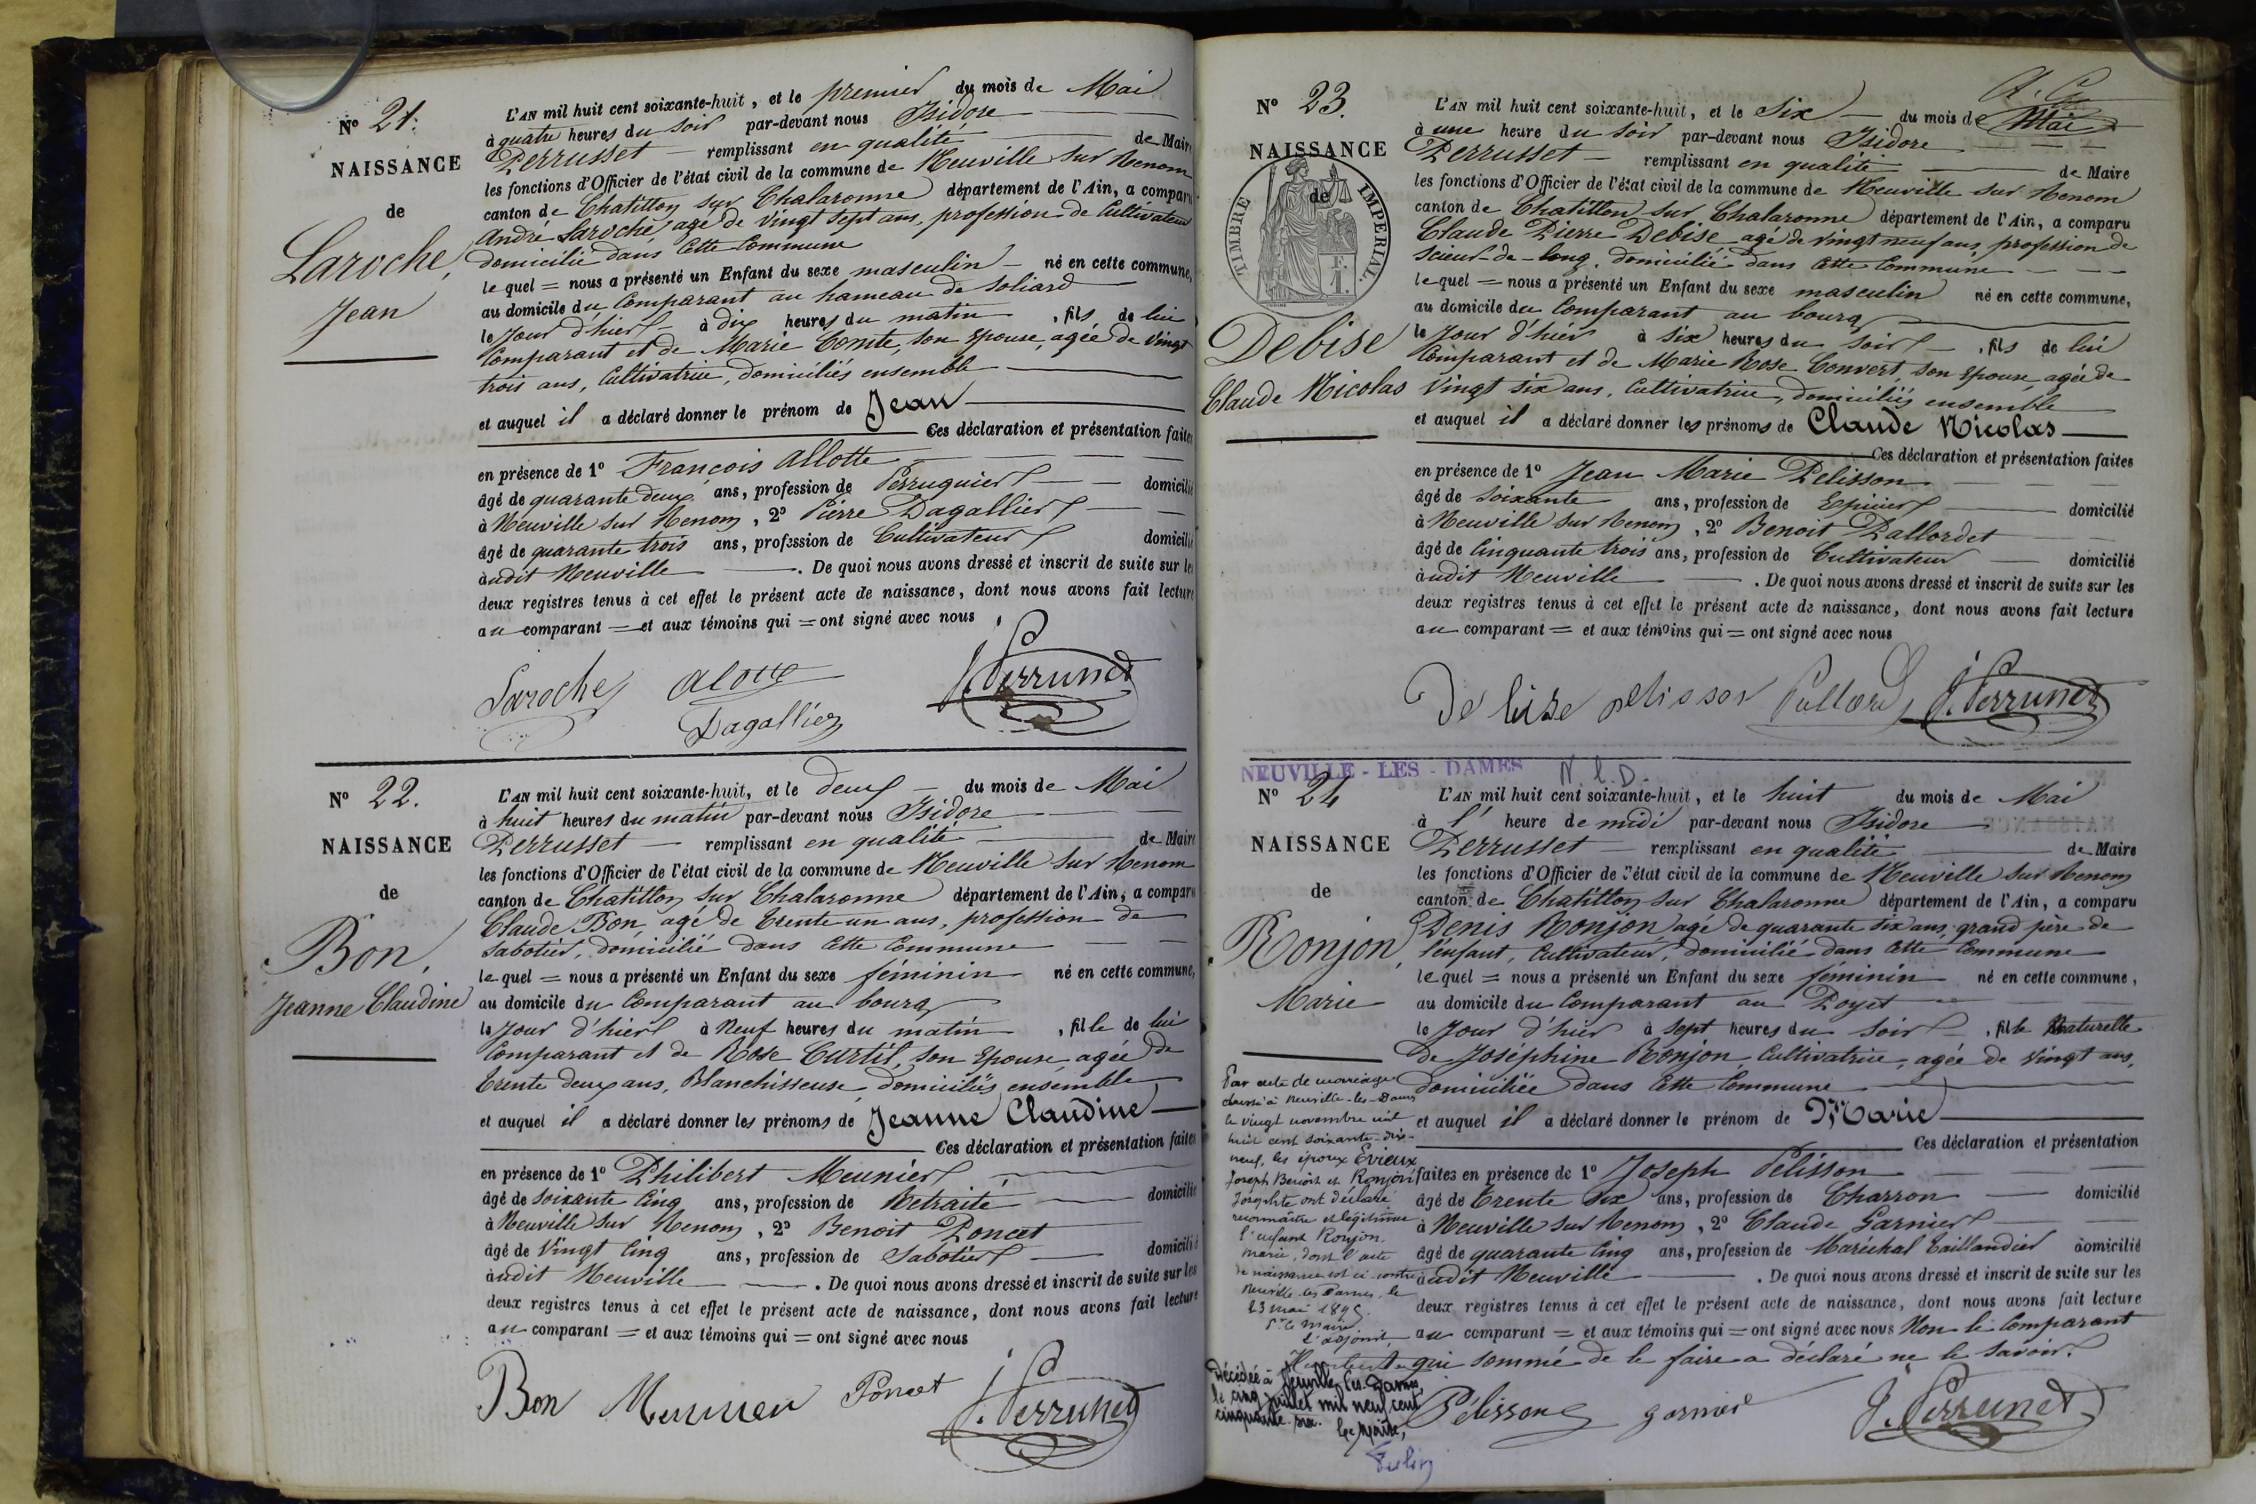 N° 21.
NAISSANCE
de
Laroche,
Jean
L'AN mil huit cent soixante-huit, et le premier du mois de Mai
à quatre heures du soir par-devant nous Isidore
Perrusset remplissant en qualité de Maire
les fonctions d'Officier de l'état civil de la commune de Neuville sur Renom
canton de Chatillon sur Chalaronne département de l'Ain, a comparu
André Laroche agé de vingt sept ans, profession de Cultivateur
domicilié dans cette Commune
le quel = nous a présenté un Enfant du sexe masculin né en cette commune,
au domicile du Comparant au hameau de Soliard
le jour d'hier à dix heures du matin, fils de lui
Comparant et de Marie Comte, son épouse, agée de vingt
trois ans, Cultivatrice, domiciliés ensemble
et auquel il a déclaré donner le prénom de Jean
Ces déclaration et présentation faites
en présence de 1° François Allotte
âgé de quarante deux ans, profession de Perruquier domicilié
à Neuville sur Renom, 2° Pierre Dagallier
âgé de quarante trois ans, profession de Cultivateur domicilié
àudit Neuville. De quoi nous avons dressé et inscrit de suite sur les
deux registres tenus à cet effet le présent acte de naissance, dont nous avons fait lecture
au comparant = et aux témoins qui = ont signé avec nous
Laroche Alotte J. Perrusset
Dagallier
N° 22.
NAISSANCE
de
Bon,
Jeanne Claudine
L'AN mil huit cent soixante-huit, et le deux du mois de Mai
à huit heures du matin par-devant nous Isidore
Perrusset remplissant en qualité de Maire
les fonctions d'Officier de l'état civil de la commune de Neuville sur Renom
canton de Chatillon sur Chalaronne département de l'Ain, a comparu
Claude Bon, agé de trente un ans, profession de
Sabotier, domicilié dans cette Commune
le quel = nous a présenté un Enfant du sexe féminin né en cette commune,
au domicile du Comparant au bourg
le jour d'hier à neuf heures du matin, fille de lui
Comparant et de Rose Curtil, son épouse, agée de
trente deux ans, Blanchisseuse, domiciliés ensemble
et auquel il a déclaré donner les prénoms de Jeanne Claudine
Ces déclaration et présentation faites
en présence de 1° Philibert Meunier
âgé de soixante cinq ans, profession de Retraité domicilié
à Neuville sur Renom, 2° Benoit Poncet
âgé de vingt cinq ans, profession de Sabotier domicilié
àudit Neuville. De quoi nous avons dressé et inscrit de suite sur les
deux registres tenus à cet effet le présent acte de naissance, dont nous avons fait lecture
au comparant = et aux témoins qui = ont signé avec nous
Bon Meunier Poncet J. Perrusset
N° 23.
NAISSANCE
de
TIMBRE IMPERIAL.
Debise
Claude Nicolas
L'AN mil huit cent soixante-huit, et le six du mois de Mai
à une heure du soir par-devant nous Isidore
Perrusset remplissant en qualité de Maire
les fonctions d'Officier de l'état civil de la commune de Neuville sur Renom
canton de Chatillon sur Chalaronne département de l'Ain, a comparu
Claude Pierre Debise agé de vingt neuf ans, profession de
Scieur-de-long, domicilié dans cette Commune
le quel = nous a présenté un Enfant du sexe masculin né en cette commune,
au domicile du Comparant au bourg
le jour d'hier à six heures du soir, fils de lui
Comparant et de Marie Rose Convert, son épouse, agée de
vingt six ans, Cultivatrice, domiciliés ensemble
et auquel il a déclaré donner les prénoms de Claude Nicolas
Ces déclaration et présentation faites
en présence de 1° Jean Marie Pelisson
âgé de soixante ans, profession de Epicier domicilié
à Neuville sur Renom, 2° Benoit Pallordet
âgé de cinquante trois ans, profession de Cultivateur domicilié
àudit Neuville. De quoi nous avons dressé et inscrit de suite sur les
deux registres tenus à cet effet le présent acte de naissance, dont nous avons fait lecture
au comparant = et aux témoins qui = ont signé avec nous
De bise pelisson J. Perrusset
NEUVILLE - LES - DAMES N. l. D.
N° 24
NAISSANCE
de
Ronjon,
Marie
L'AN mil huit cent soixante-huit, et le huit du mois de Mai
à l' heure de midi par-devant nous Isidore
Perrusset remplissant en qualité de Maire
les fonctions d'Officier de l'état civil de la commune de Neuville sur Renom
canton de Chatillon sur Chalaronne département de l'Ain, a comparu
Denis Ronjon, agé de quarante six ans, grand père de
l'enfant, Cultivateur, domicilié dans cette Commune
le quel = nous a présenté un Enfant du sexe féminin né en cette commune,
au domicile du Comparant au Poyet
le jour d'hier à sept heures du soir, fille naturelle
de Joséphine Ronjon, Cultivatrice, agée de vingt ans,
domiciliée dans cette Commune
et auquel il a déclaré donner le prénom de Marie
Ces déclaration et présentation
faites en présence de 1° Joseph Pélisson
âgé de trente six ans, profession de Charron domicilié
à Neuville sur Renom, 2° Claude Garnier
âgé de quarante cinq ans, profession de Maréchal taillandier domicilié
àudit Neuville. De quoi nous avons dressé et inscrit de suite sur les
deux registres tenus à cet effet le présent acte de naissance, dont nous avons fait lecture
au comparant = et aux témoins qui = ont signé avec nous Non le Comparant
qui sommé de le faire a déclaré ne le savoir.
Pélisson garnier J. Perrusset
Par acte de mariage
dressé à Neuville-les-Dames
le vingt novembre mil
huit cent soixante-dix-
neuf, les époux Evieux
Joseph Benoit et Ronjon
Josephte ont déclaré
reconnaître et légitimer
l'enfant Ronjon
Marie, dont l'acte
de naissance est ci-contre
Neuville-les-Dames, le
23 mai 189
Pr le Maire
l'adjoint
Décédée à Neuville-les-Dames
le cinq juillet mil neuf cent
cinquante six. Le Maire,